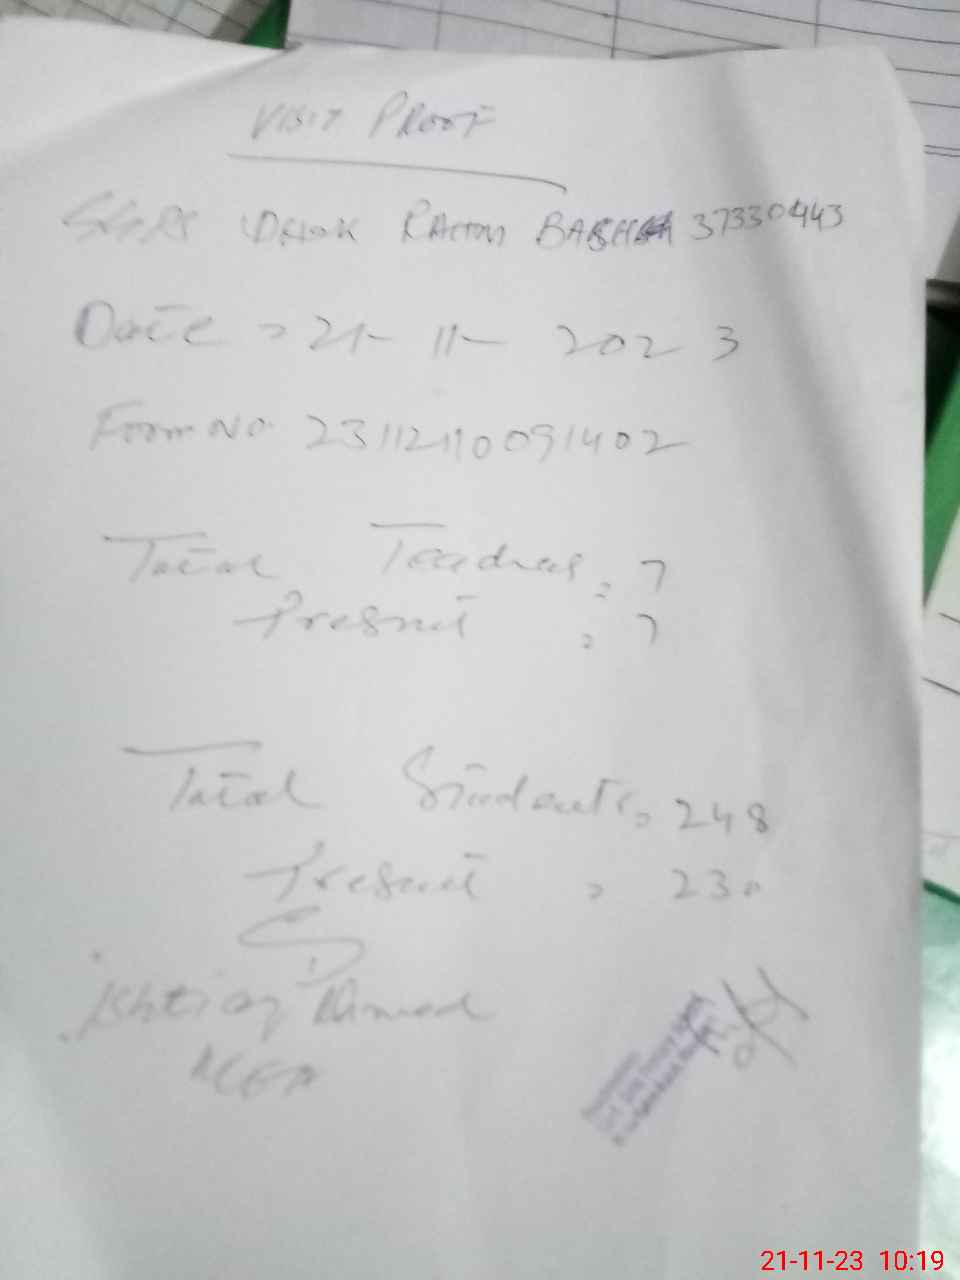 VISIT PROOF
DHOK RAHIM BAKHSH 37330443
Date = 21-11-2023
Form NO. 23112110091402
Total Teachers = 7
Present = 7
Total Students = 248
Present = 230
Ishtiaq Ahmed
21-11-23 10:19